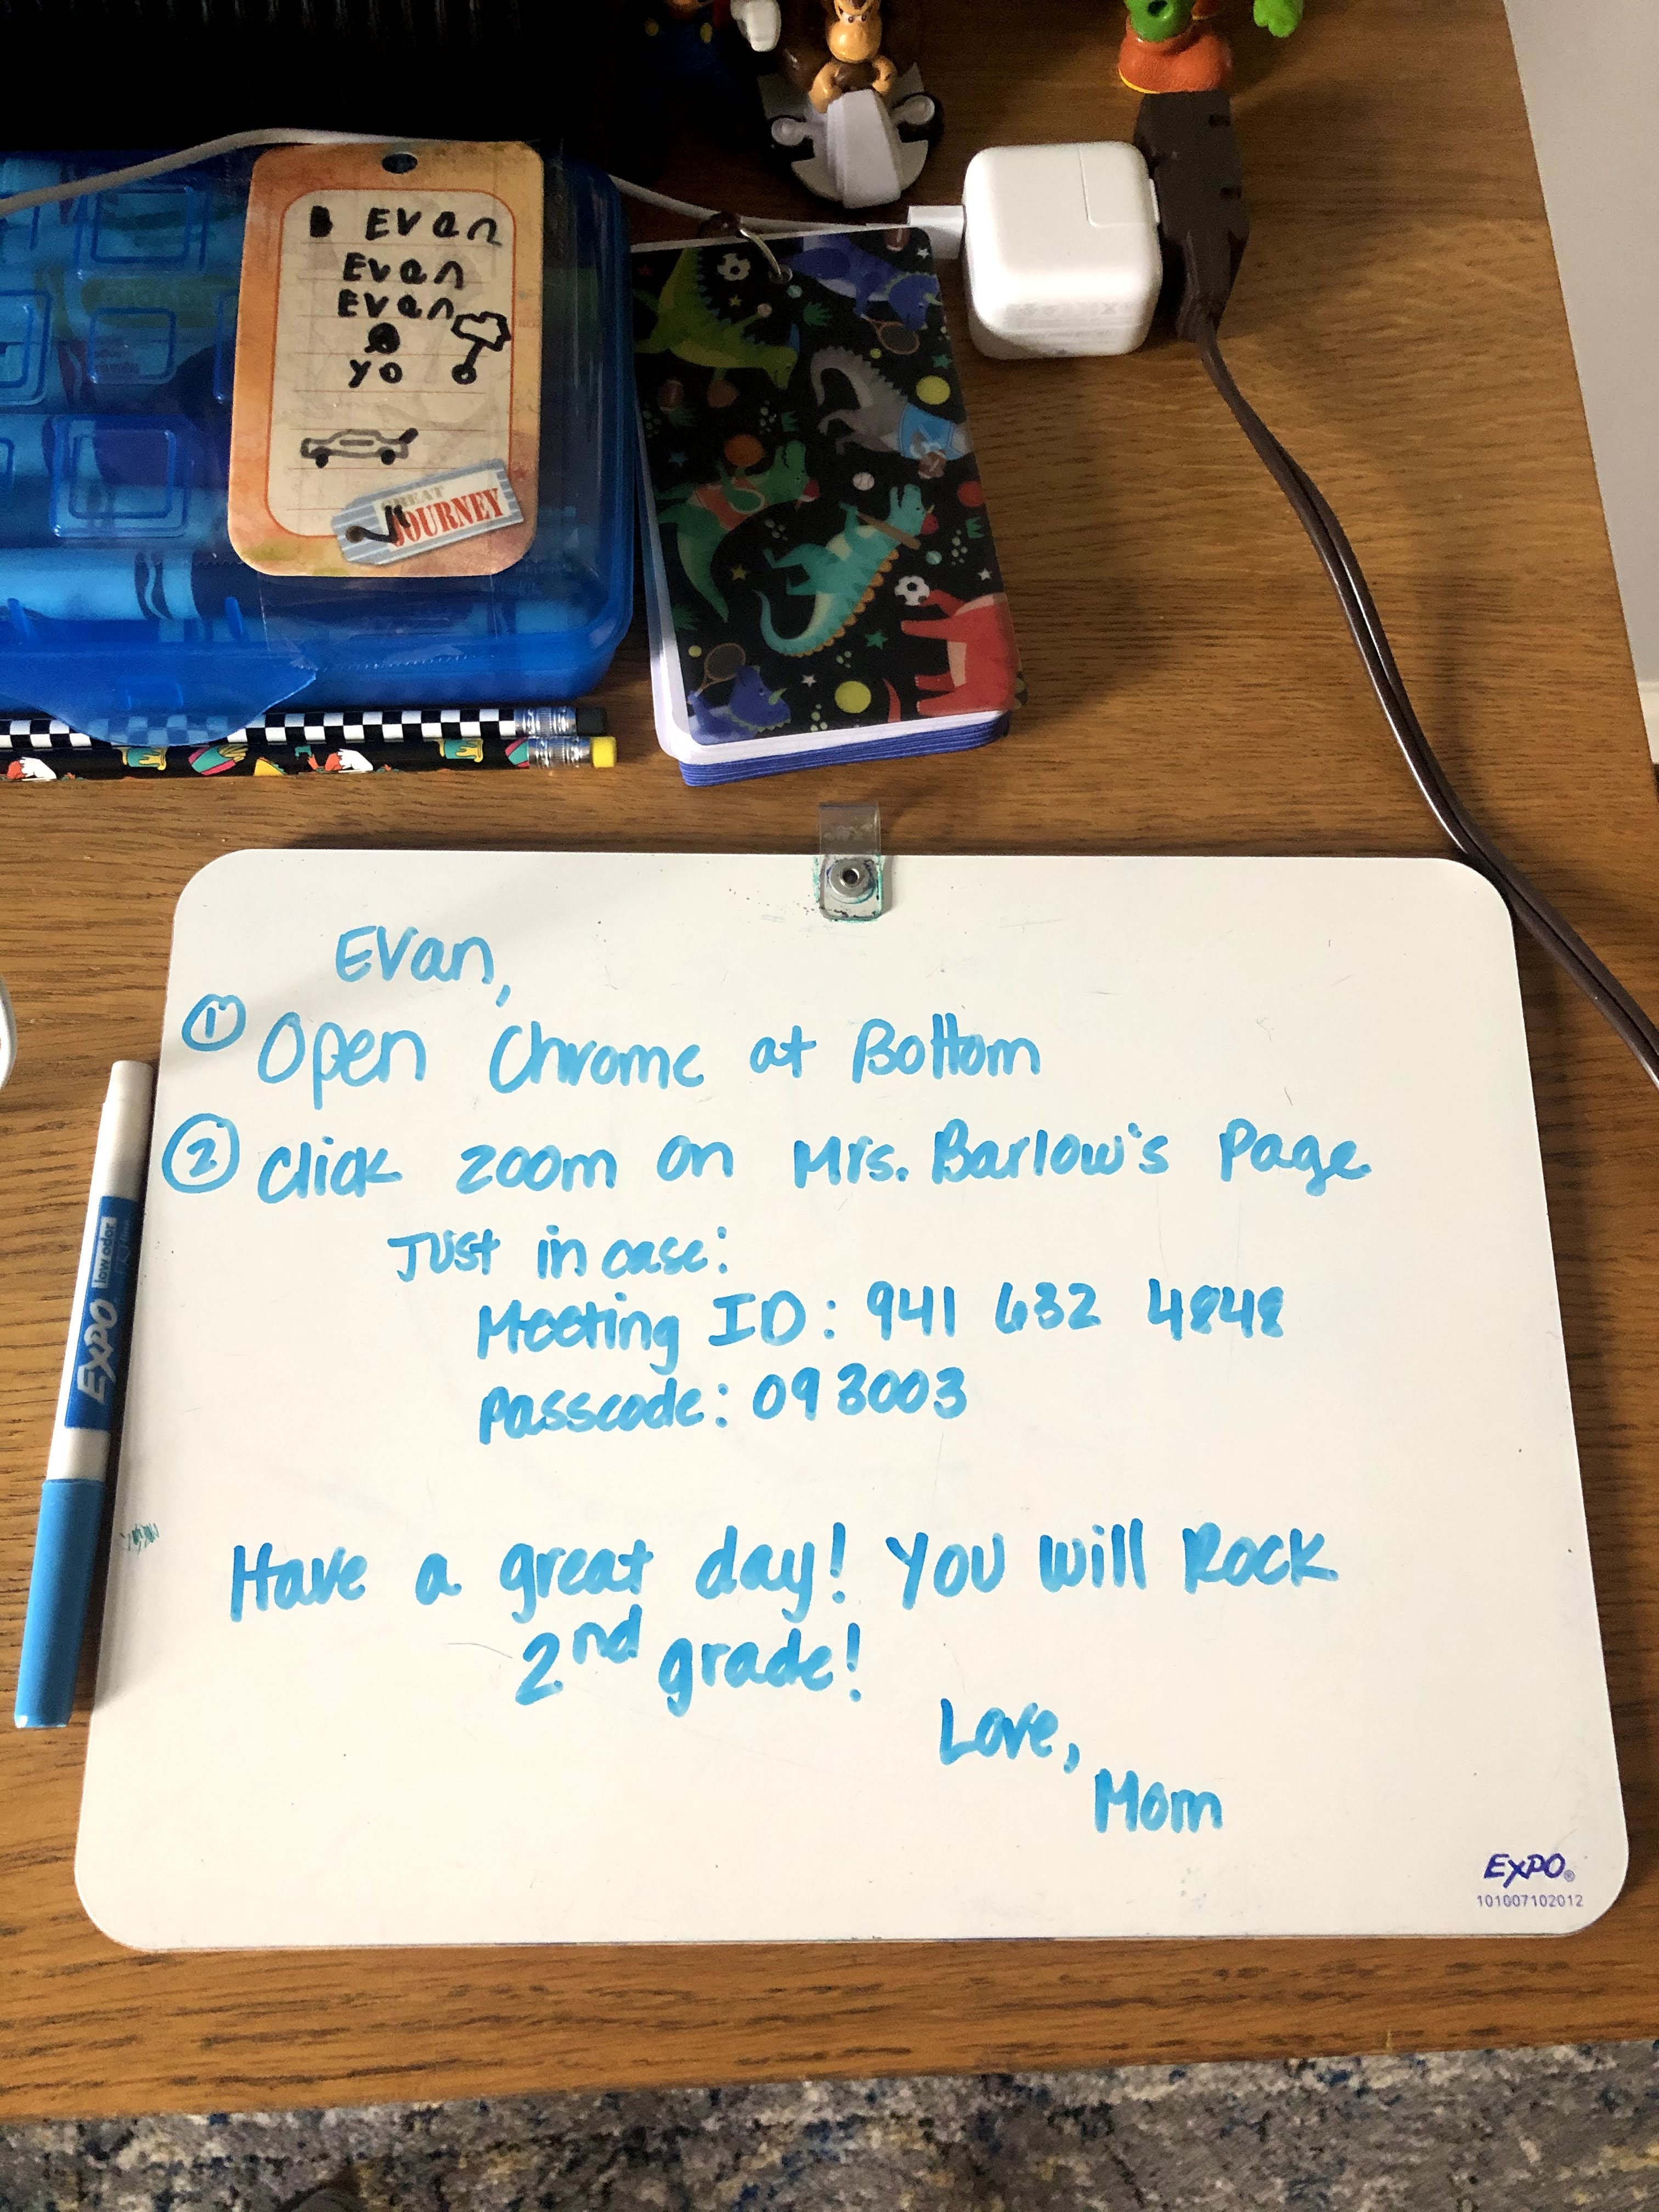 Evan
Evan
Evan
yo
GREAT
JOURNEY
EXPO
low odor
Evan,
1 Open Chrome at Bottom
2 Click zoom on Mrs. Barlow's Page
Just in case:
Meeting ID: 941 632 4848
Passcode: 093003
Have a great day! You will Rock
2nd grade!
Love,
Mom
EXPO®
101007102012